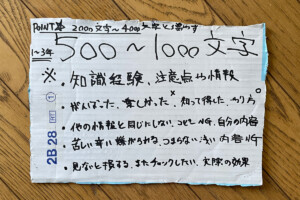 POINT 2000文字〜4000文字
1〜3年
500〜1000文字
※知識経験、注意点や情報
がんばった、苦しかった、知って得した、やり方
・他の情報と同じにしない、コピペNG、自分の内容
苦しい 嫌がられる、つまらない浅い内容NG
・見ないと損する、またチェックしたい、実際の効果
2B 28